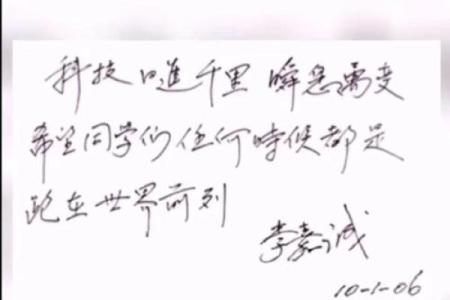 科技日進千里 瞬息萬变
希望同学们任何時候都是
跑在世界前列
李嘉诚
10-1-06